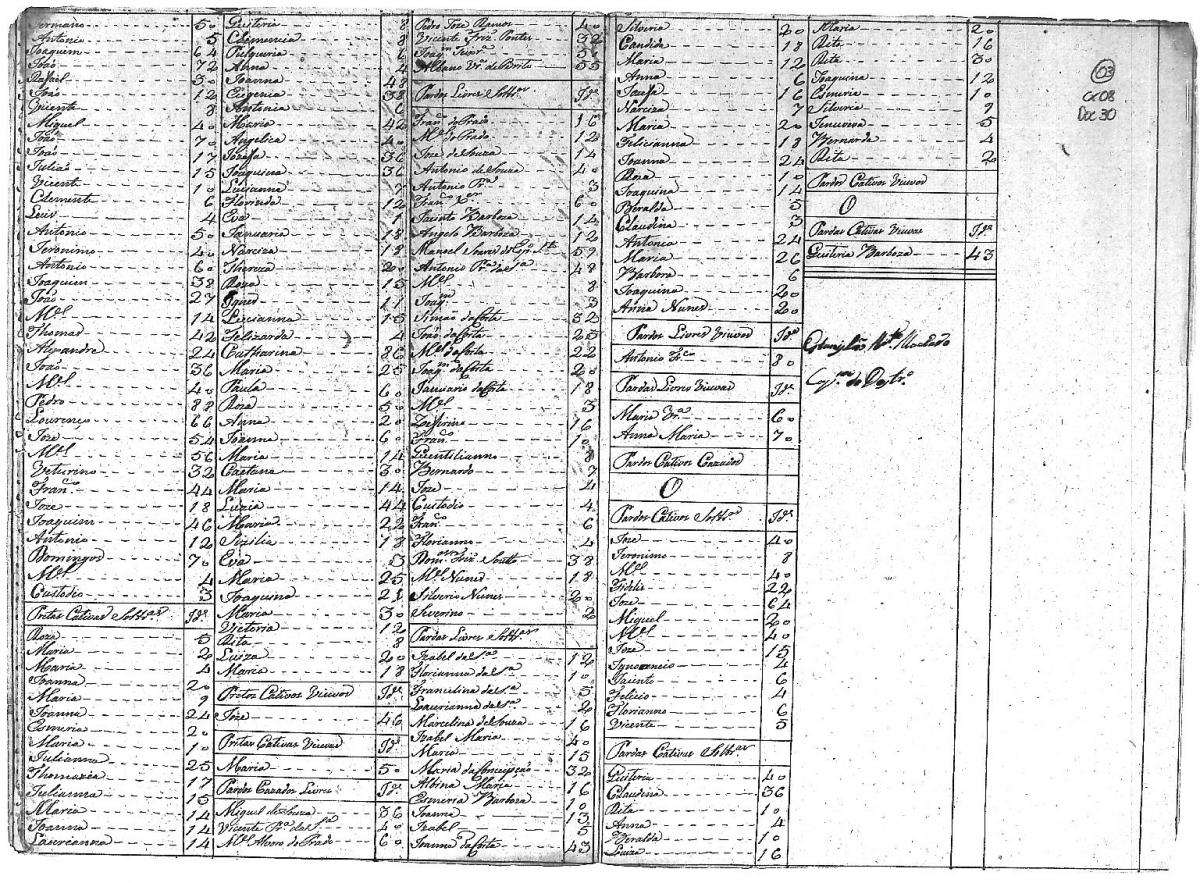 Germano 50
Antonio 5
Joaquim 64
João 72
Rafael 30
João 12
Vicente 8
Miguel 40
João 70
João 17
Julião 15
Vicente 10
Clemente 6
Luis 4
Antonio 50
Jeronimo 40
Antonio 60
Joaquim 38
João 27
M.el 14
Thomas 42
Alexandre 24
João 36
M.el 40
Pedro 88
Lourenço 66
Joze 54
M.el 56
Veturino 32
Fran.co 44
Joze 18
Joaquim 46
Antonio 12
Domingos 70
M.el 4
Custodio 3
Pretas Cativas Soltr.as Id.e
Roza 5
Maria 20
Maria 4
Joanna 20
Maria 9
Joanna 24
Esmeria 20
Maria 10
Julianna 25
Thomazia 17
Julianna 15
Maria 14
Joanna 14
Laurianna 14
Quiteria 8
Clemencia 8
Pulqueria 7
Anna 4
Joanna 48
Eigenia 38
Antonia 6
Maria 42
Angelica 40
Jozefa 36
Joaquina 36
Luisanna 7
Florinda 12
Eva 1
Januaria 18
Narciza 18
Thereza 20
Roza 15
Ignes 11
Licianna 15
Felizarda 4
Catharina 86
Maria 25
Paula 60
Roza 50
Anna 20
Joanna 60
Maria 14
Caetana 30
Maria 14
Luzia 44
Maria 22
Sizilia 18
Eva 3
Maria 25
Joaquina 21
Maria 30
Victoria 12
Rita 8
Luiza 20
Maria 18
Pretos Cativos Viuvos Id.e
Joze 46
Pretas Cativas Viuvas Id.e
Maria 50
Pardos Cazados Livres Id.e
Miguel de Souza 36
Vicente Pr.a da S.a 40
M.el Alvares do Prado 60
Pedro Joze Ramos 40
Vicente Friz Pontes 32
Joaq.m 36
Albano Vr.a de Brito 55
Pardos Livres Soltr.os Id.e
Fran.co do Prado 16
M.el do Prado 12
Joze de Souza 14
Antonio de Souza 40
Antonio Pr.a 3
Fran.co 60
Jacinto Barboza 14
Angelo Barboza 12
Manoel Soares do Esp.o S.to 59
Antonio Pr.a da S.a 48
M.el 8
Joaq.m 3
Simão da Costa 32
João da Costa 25
M.el da Costa 22
Joaq.m da Costa 20
Januario da Costa 18
M.el 3
Zeferino 16
Fran.co 10
Quintilianno 8
Bernardo 7
Joze 4
Custodio 4
Fran.co 6
Florianno 4
Dom.os Friz Souto 38
M.el Nunes 18
Silverio Nunes 20
Severino 2
Pardas Livres Soltr.as
Izabel da S.a 12
Florianna da S.a 10
Francelina da S.a 5
Laurianna da S.a 2
Marcelina de Souza 16
Izabel Maria 40
Maria 15
Maria da Conceipção 32
Albina Maria 16
Esmeria Barboza 10
Joanna 13
Izabel 5
Joanna da Costa 43
Silveria 20
Candida 18
Maria 12
Anna 6
Jozefa 16
Narciza 7
Maria 20
Felicianna 18
Joanna 24
Roza 10
Joaquina 14
Beralda 5
Claudina 3
Antonia 24
Maria 26
Barbora 6
Joaquina 20
Anna Nunes 20
Pardos Livres Viuvos Id.e
Antonio Fr.co 80
Pardas Livres Viuvas Id.e
Maria Vr.a 60
Anna Maria 70
Pardos Cativos Cazados
O
Pardos Cativos Soltr.os Id.e
Joze 40
Jeronimo 8
M.el 40
Fidelis 22
Joze 64
Miguel 20
M.el 40
Joze 15
Ignocencio 4
Jacinto 6
Felicio 4
Florianno 6
Vicente 5
Pardas Cativas Soltr.as
Quiteria 40
Claudina 36
Rita 10
Anna 4
Beralda 10
Luiza 16
Maria 20
Rita 16
Rita 30
Joaquina 12
Esmeria 10
Silveria 9
Genoveva 5
Bernarda 4
Rita 2
Pardos Cativos Viuvos
O
Pardas Cativas Viuvas Id.e
Quiteria Barboza 43
Machado
Cap.m do Destr.o
03
Cx 08
Doc 30